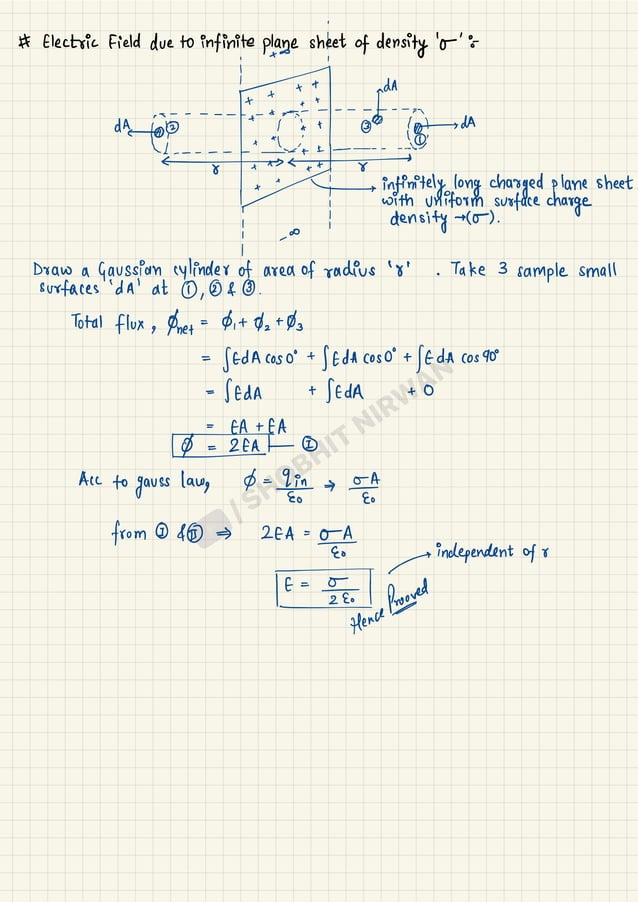 # Electric Field due to infinite plane sheet of density 'σ' :-
+∞
dA
dA ② ③ dA
①
r r
infinitely long charged plane sheet
with uniform surface charge
density →(σ).
-∞
Draw a Gaussian cylinder of area of radius 'r' . Take 3 sample small
surfaces 'dA' at ①, ② & ③.
Total flux, ϕnet = ϕ₁ + ϕ₂ + ϕ₃
= ∫EdA cos 0° + ∫EdA cos 0° + ∫E dA cos 90°
= ∫EdA + ∫EdA + 0
= EA + EA
ϕ = 2EA — Ⓘ
Acc to gauss law, ϕ = qin/ε₀ → σA/ε₀
from Ⓘ & Ⓘⓘ ⇒ 2EA = σA/ε₀
independent of r
E = σ/2ε₀
Hence Prooved
/ SHOBHIT NIRWAN